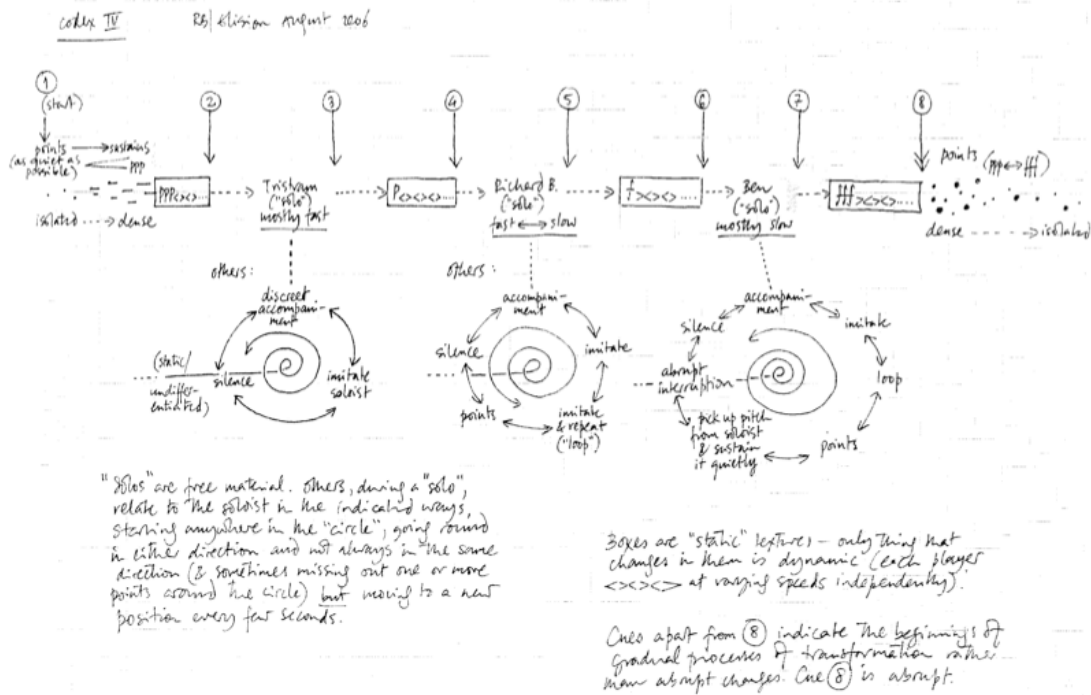 codex IV
RB/Elision August 2006
1
(start)
2
3
4
5
6
7
8
points → sustains
(as quiet as possible)
ppp
isolated ----> dense
ppp<><>...
Tristram
("solo")
mostly fast
p<><><>....
Richard B.
("solo")
fast ↔ slow
f><><>....
Ben
("solo")
mostly slow
fff><><>....
points (ppp↔fff)
dense -----> isolated
others:
discreet
accompani-
ment
imitate
soloist
silence
(static/
undiffer-
entiated)
others:
accompani-
ment
imitate
imitate
& repeat
("loop")
points
silence
accompani-
ment
imitate
loop
points
pick up pitch
from soloist
& sustain
it quietly
abrupt
interruption
silence
"Solos" are free material. Others, during a "solo",
relate to the soloist in the indicated ways,
starting anywhere in the "circle", going round
in either direction and not always in the same
direction (& sometimes missing out one or more
points around the circle) but moving to a new
position every few seconds.
Boxes are "static" textures – only thing that
changes in them is dynamic (each player
<><><> at varying speeds independently).
Cues apart from 8 indicate the beginnings of
gradual processes of transformation rather
than abrupt changes. Cue 8 is abrupt.